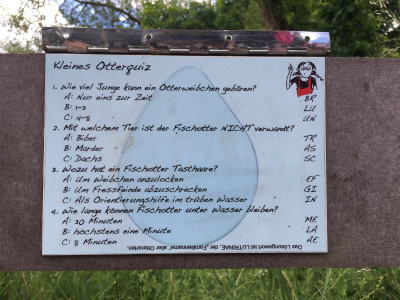 Kleines Otterquiz
1. Wie viel Junge kann ein Otterweibchen gebären?
A: Nur eins zur Zeit BR
B: 1-3 LU
C: 4-8 UN
2. Mit welchem Tier ist der Fischotter NICHT verwandt?
A: Biber TR
B: Marder AS
C: Dachs SC
3. Wozu hat ein Fischotter Tasthaare?
A: Um Weibchen anzulocken EF
B: Um Fressfeinde abzuschrecken GI
C: Als Orientierungshilfe im trüben Wasser IN
4. Wie lange können Fischotter unter Wasser bleiben?
A: 30 Minuten ME
B: höchstens eine Minute LA
C: 8 Minuten AE
Das Lösungswort ist LUTRINAE, der „Familienname" aller Otterarten.